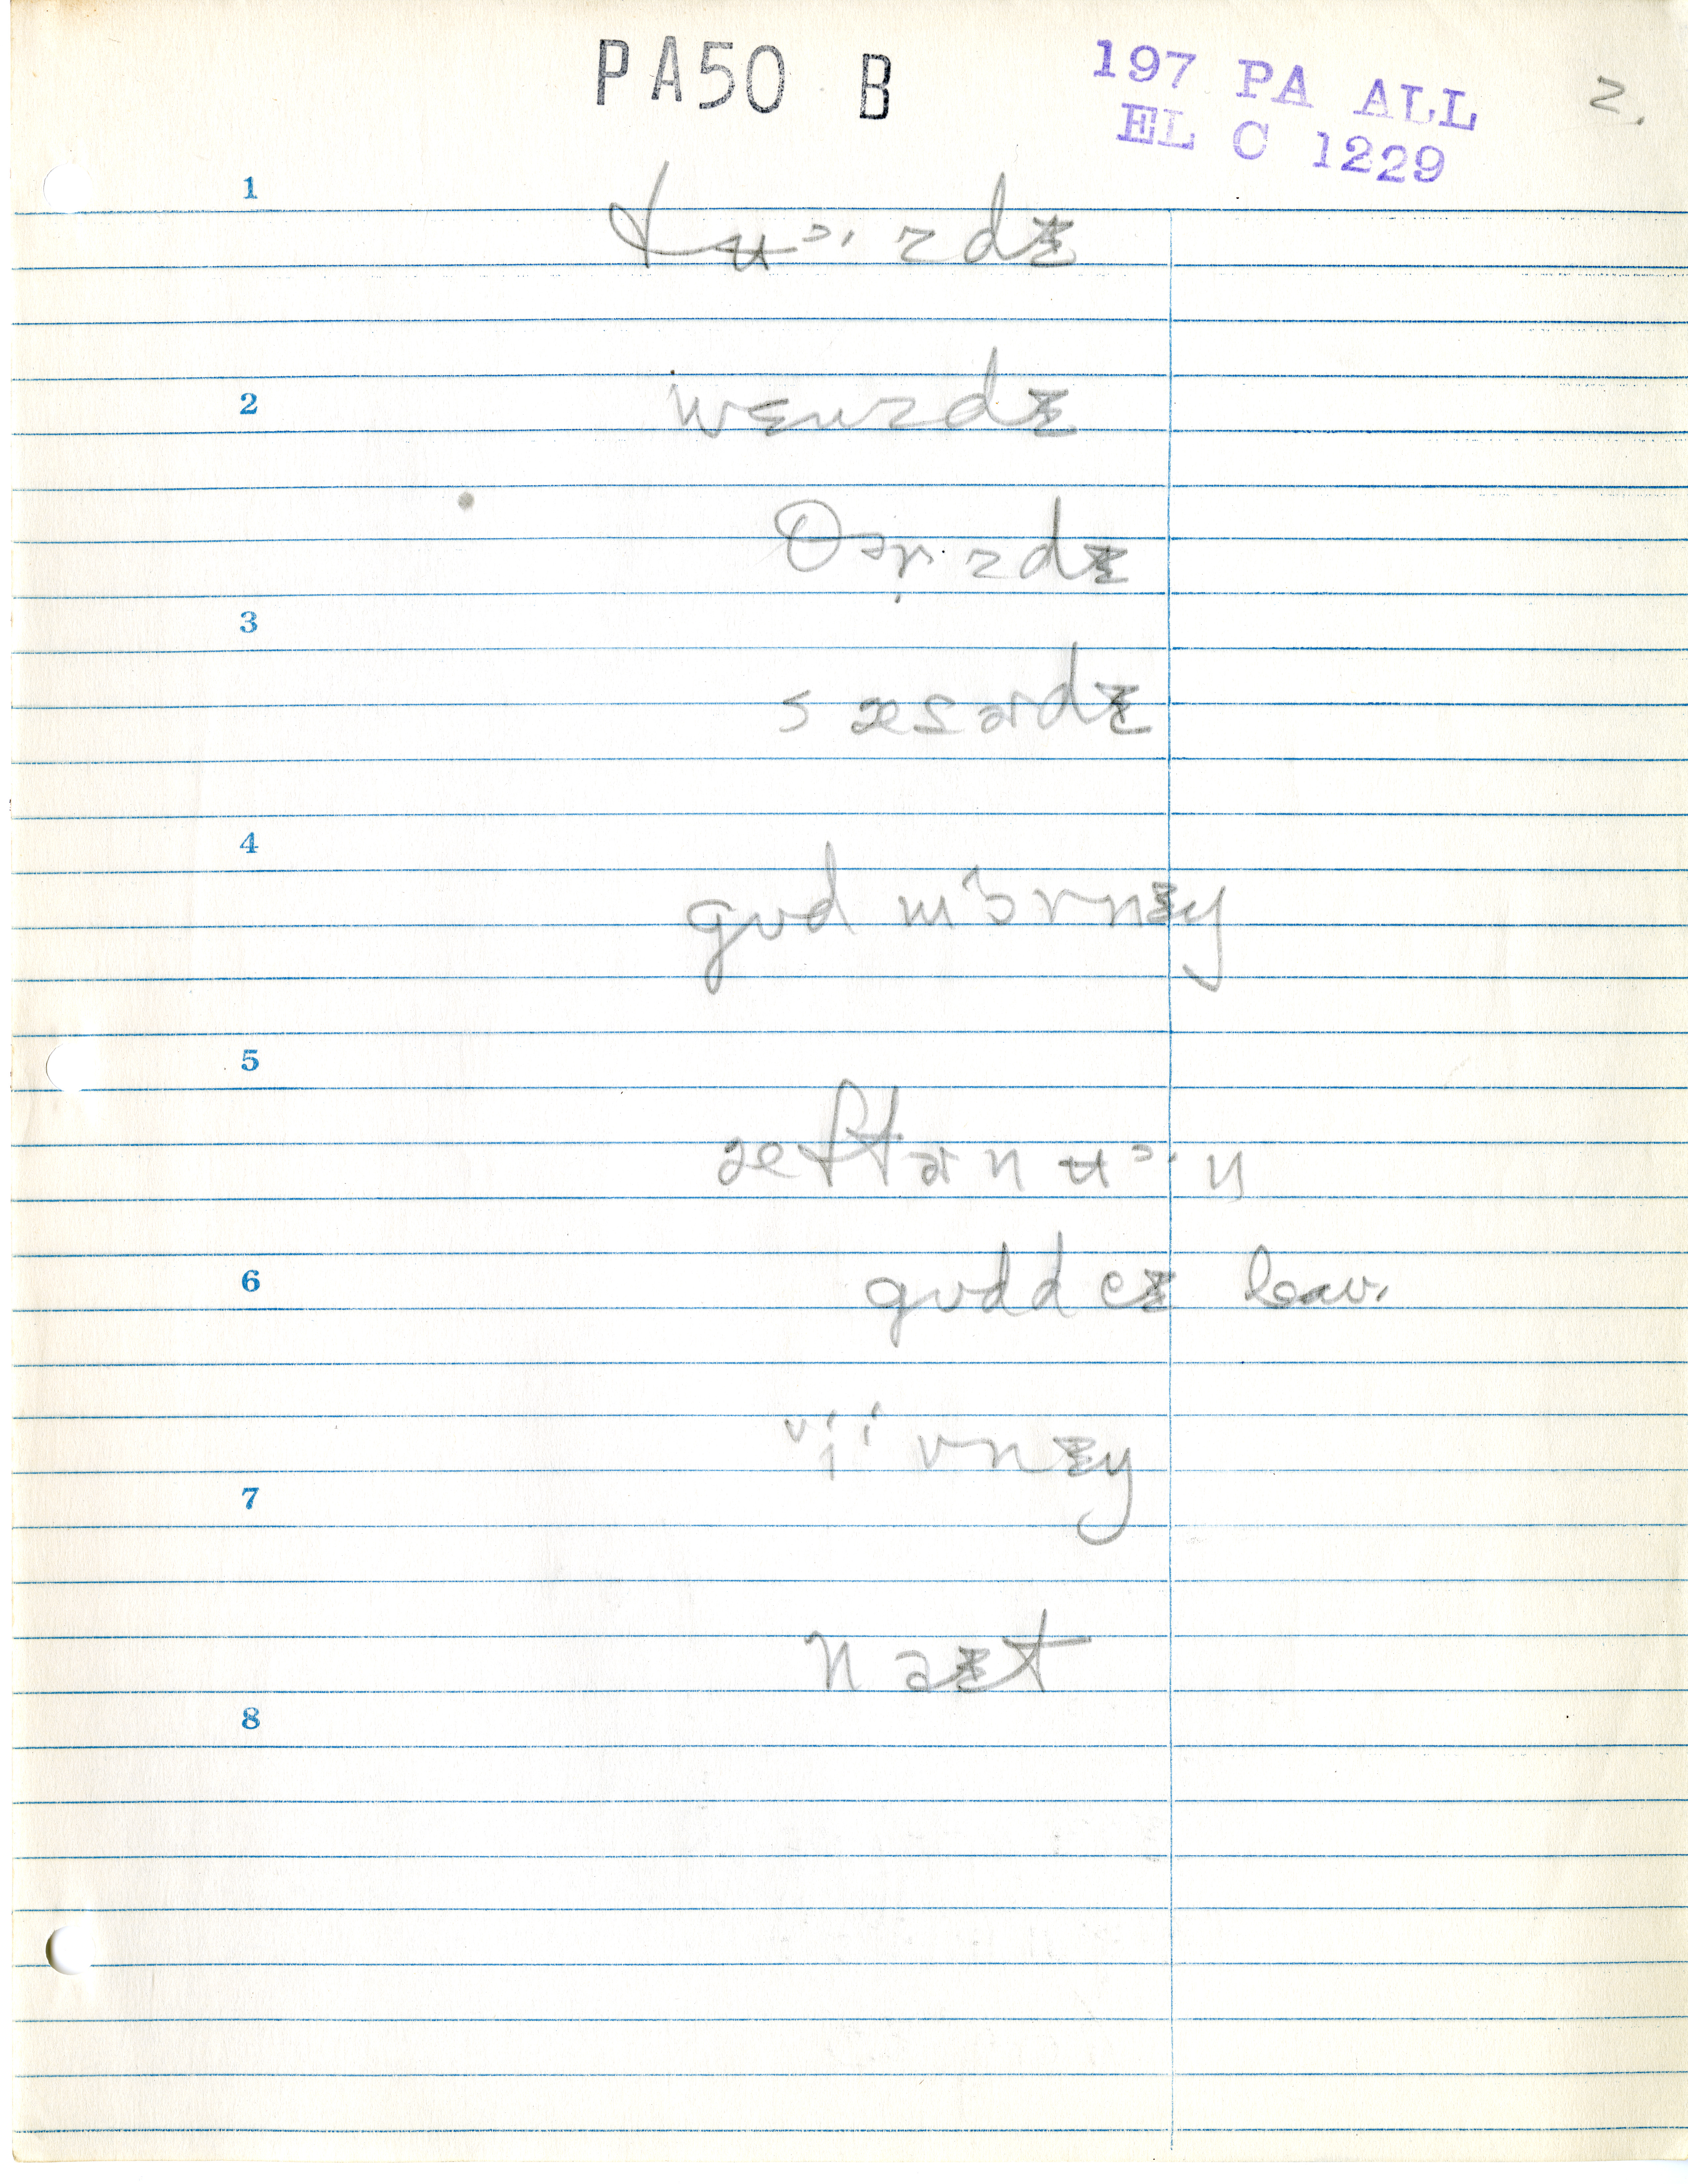 PA50 B
197 PA ALL
EL C 1229
2.
1
tʉᵊ·zdɪ
2
wɛnzdɪ
θɚ·zdɪ
3
sæsərdɪ
4
gʊd mɔ́rnɪŋ
5
æftərnʉᵊ·n
6
gʊddeɪ leav.
vnɪŋ
7
naɪt
8